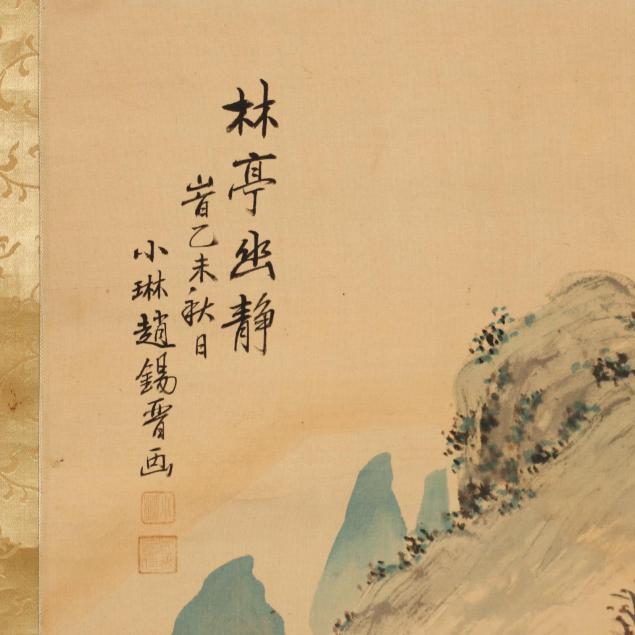 林亭幽静
峕乙未秋日
小琳趙錫晋画